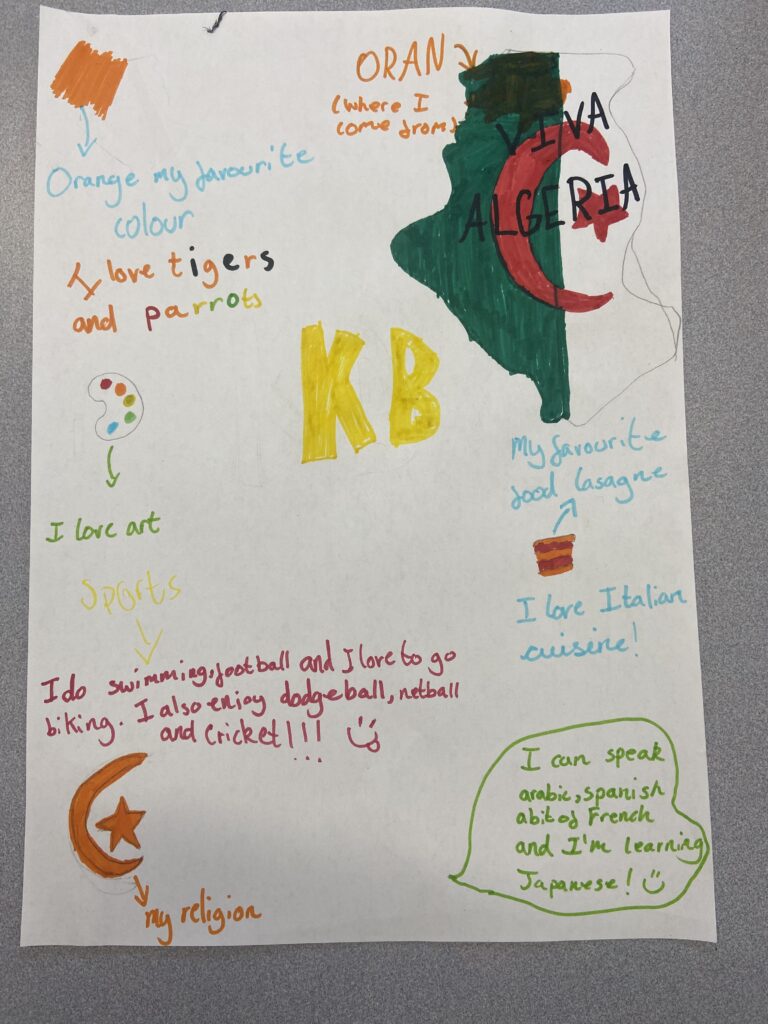 ORAN
(where I
come from)
VIVA
ALGERIA
Orange my favourite
colour
I love tigers
and parrots
KB
My favourite
food lasagne
I love art
I love Italian
cuisine!
Sports
I do swimming, football and I love to go
biking. I also enjoy dodgeball, netball
and cricket!!!
I can speak
arabic, spanish
a bit of French
and I'm learning
Japanese!
my religion